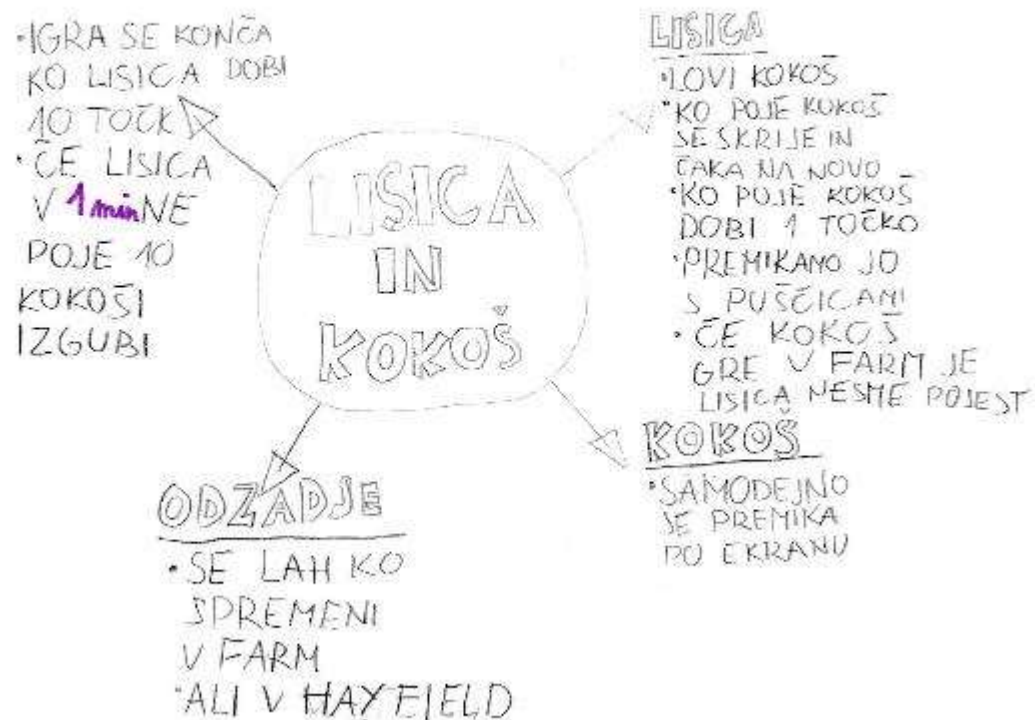 •IGRA SE KONČA
KO LISICA DOBI
10 TOČK
•ČE LISICA
V 1 min NE
POJE 10
KOKOŠI
IZGUBI
LISICA
IN
KOKOŠ
LISICA
•LOVI KOKOŠ
•KO POJE KOKOŠ
SE SKRIJE IN
ČAKA NA NOVO
•KO POJE KOKOŠ
DOBI 1 TOČKO
•PREMIKAMO JO
S PUŠČICAMI
•ČE KOKOŠ
GRE V FARM JE
LISICA NESME POJEST
KOKOŠ
•SAMODEJNO
SE PREMIKA
PO EKRANU
ODZADJE
•SE LAHKO
SPREMENI
V FARM
•ALI V HAYFIELD